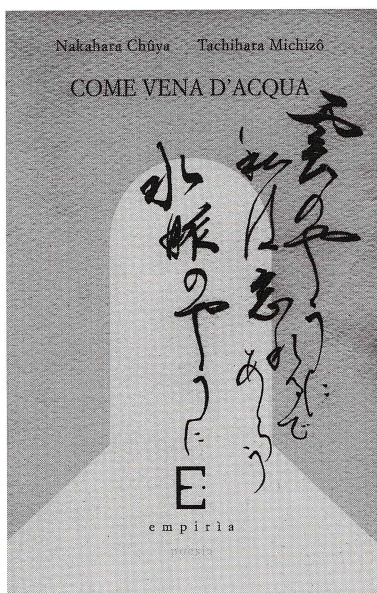 Nakahara Chûya Tachihara Michizô
COME VENA D'ACQUA
雲のやうに
私は忘
あらう
水脈のやうに
E
empirìa
poesia